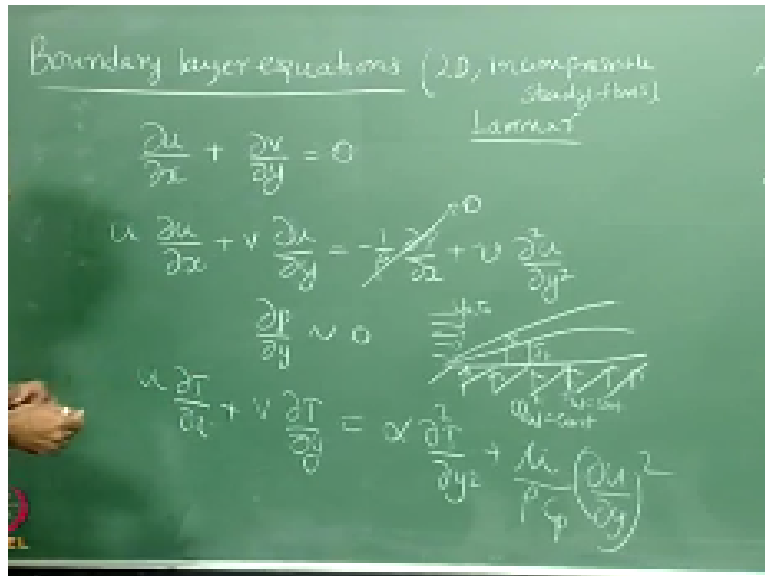 Boundary layer equations (2D, incompressible
steady flows)
Laminar
∂u/∂x + ∂v/∂y = 0
u ∂u/∂x + v ∂u/∂y = -1/ρ ∂p/∂x + ν ∂²u/∂y²
0
∂p/∂y ~ 0
u ∂T/∂x + v ∂T/∂y = α ∂²T/∂y² + μ/ρCp (∂u/∂y)²